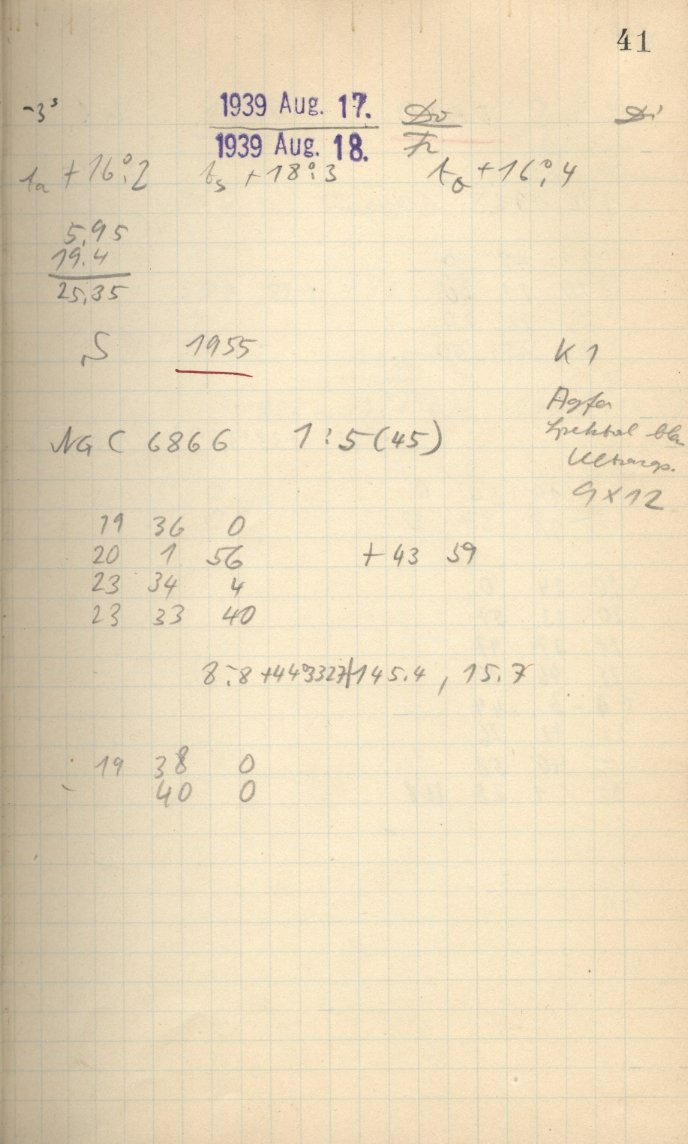 41
-3ˢ 1939 Aug. 17. Do Di
1939 Aug. 18. Fr
ta +16°.2 ts +18°.3 to +16°.4
5.95
19.4
25.35
S 1955 K 1
Agfa
Spektral blau
NGC 6866 1:5 (45)
Ultrarap.
9 x 12
19 36 0
20 1 56 +43 59
23 34 4
23 33 40
8.8 +44°3327 145.4, 15.7
19 38 0
40 0